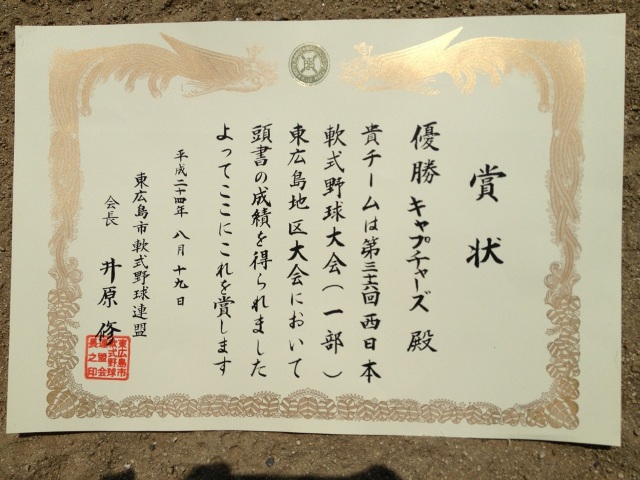 賞状
優勝 キャプチャーズ 殿
貴チームは第三十六回西日本
軟式野球大会(一部)
東広島地区大会において
頭書の成績を得られました
よってここにこれを賞します
平成二十四年 八月 十九日
東広島市軟式野球連盟
会長 井原 修
東広島市
軟式野球
連盟会
長之印